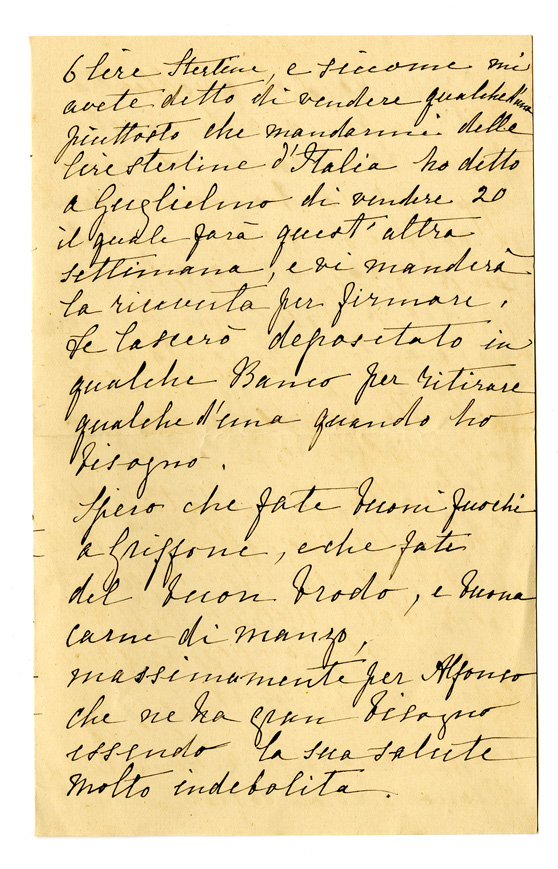 6 lire Sterline, e siccome mi
avete detto di vendere qualched'una
piuttosto che mandarmi delle
lire sterline d'Italia ho detto
a Guglielmo di vendere 20
il quale farà quest'altra
settimana, e vi manderà
la ricevuta per firmare,
Le lascerò depositato in
qualche Banco per ritirare
qualched'una quando ho
bisogno.
Spero che fate buoni fuochi
a Griffone, e che fate
del buon brodo, e buona
carne di manzo,
massimamente per Alfonso
che ne ha gran bisogno
essendo la sua salute
molto indebolita.